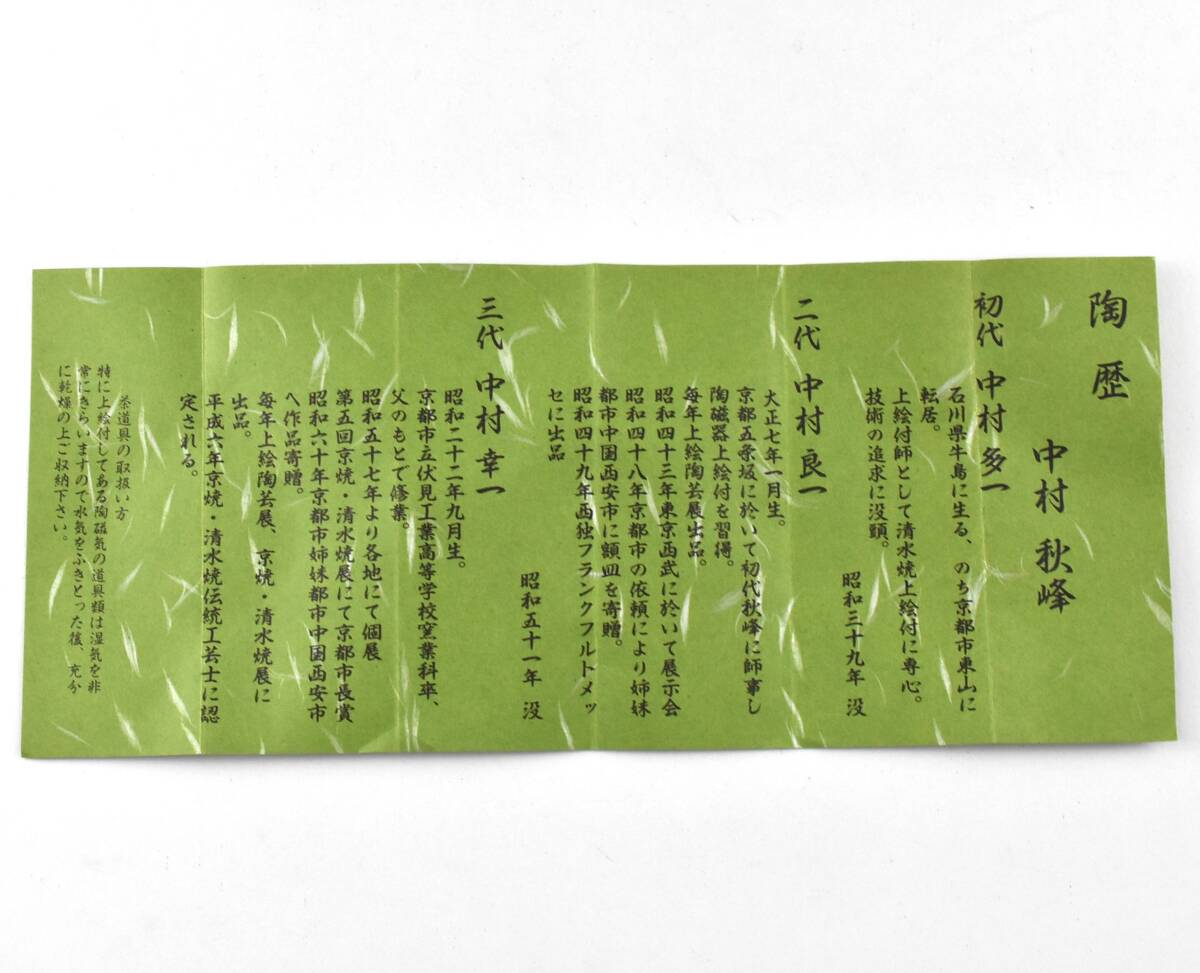 陶歴
中村秋峰
初代 中村多一
石川県牛島に生る、のち京都市東山に
転居。
上絵付師として清水焼上絵付に専心。
技術の追求に没頭。
昭和三十九年 没
二代 中村良一
大正七年一月生。
京都五条坂に於いて初代秋峰に師事し
陶磁器上絵付を習得。
毎年上絵陶芸展出品。
昭和四十三年東京西武に於いて展示会
昭和四十八年京都市の依頼により姉妹
都市中国西安市に額皿を寄贈。
昭和四十九年西独フランクフルトメッ
セに出品
昭和五十一年 没
三代 中村幸一
昭和二十二年九月生。
京都市立伏見工業高等学校窯業科卒、
父のもとで修業。
昭和五十七年より各地にて個展
第五回京焼・清水焼展にて京都市長賞
昭和六十年京都市姉妹都市中国西安市
へ作品寄贈。
毎年上絵陶芸展、京焼・清水焼展に
出品。
平成六年京焼・清水焼伝統工芸士に認
定される。
茶道具の取扱い方
特に上絵付してある陶磁気の道具類は湿気を非
常にきらいますので水気をふきとった後、充分
に乾燥の上ご収納下さい。